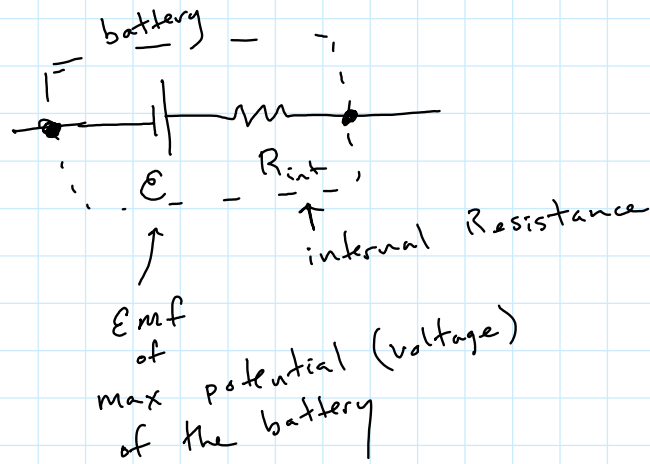 battery
ε
Rint
internal Resistance
Emf
of
max potential (voltage)
of the battery